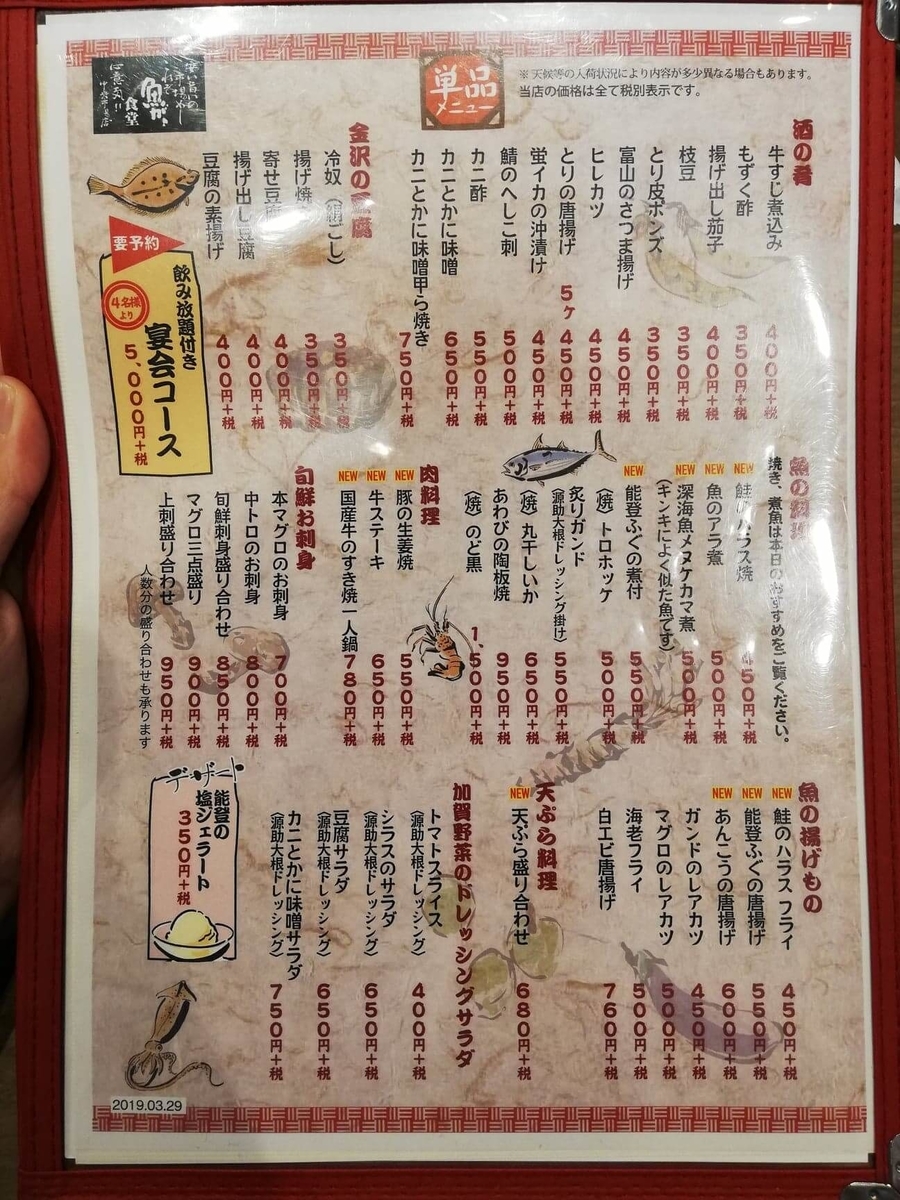 単品
メニュー
※ 天候等の入荷状況により内容が多少異なる場合もあります。
当店の価格は全て税別表示です。
魚が
食堂
酒の肴
牛すじ煮込み 400円+税
もずく酢 350円+税
揚げ出し茄子 400円+税
枝豆 350円+税
とり皮ポンズ 350円+税
富山のさつま揚げ 450円+税
ヒレカツ 450円+税
とりの唐揚げ 5ヶ 450円+税
蛍イカの沖漬け 450円+税
鯖のへしこ刺 500円+税
カニ酢 550円+税
カニとかに味噌 650円+税
カニとかに味噌甲ら焼き 750円+税
金沢の豆腐
冷奴(絹ごし) 350円+税
揚げ焼 350円+税
寄せ豆腐 400円+税
揚げ出し豆腐 400円+税
豆腐の素揚げ 400円+税
要予約
4名様
より
飲み放題付き
宴会コース
5,000円+税
魚の料理
焼き、煮魚は本日のおすすめをご覧ください。
NEW 鮭のハラス焼 450円+税
NEW 魚のアラ煮 500円+税
NEW 深海魚メヌケカマ煮 500円+税
(キンキによく似た魚です)
NEW 能登ふぐの煮付 550円+税
(焼) トロホッケ 500円+税
炙りガンド 550円+税
(源助大根ドレッシング掛け)
(焼) 丸干しいか 650円+税
あわびの陶板焼 950円+税
(焼) のど黒 1,500円+税
肉料理
NEW 豚の生姜焼 550円+税
NEW 牛ステーキ 650円+税
NEW 国産牛のすき焼一人鍋 780円+税
旬鮮お刺身
本マグロのお刺身 700円+税
中トロのお刺身 800円+税
旬鮮刺身盛り合わせ 850円+税
マグロ三点盛り 900円+税
上刺盛り合わせ 950円+税
人数分の盛り合わせも承ります
魚の揚げもの
NEW 鮭のハラス フライ 450円+税
NEW 能登ふぐの唐揚げ 550円+税
NEW あんこうの唐揚げ 600円+税
ガンドのレアカツ 450円+税
マグロのレアカツ 500円+税
海老フライ 500円+税
白エビ唐揚げ 760円+税
天ぷら料理
NEW 天ぷら盛り合わせ 680円+税
加賀野菜のドレッシングサラダ
トマトスライス 400円+税
(源助大根ドレッシング)
シラスのサラダ 650円+税
(源助大根ドレッシング)
豆腐サラダ 650円+税
(源助大根ドレッシング)
カニとかに味噌サラダ 750円+税
(源助大根ドレッシング)
デザート
能登の
塩ジェラート
350円+税
2019.03.29